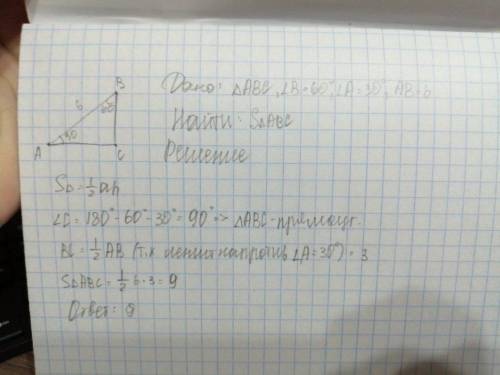 B
6
60°
30
A
C
Дано: △ABC, ∠B=60°, ∠A=30°, AB=6
Найти: S△ABC
Решение
S△=½ah
∠C=180°-60°-30°=90°=> △ABC-прямоуг.
BC=½AB (т.к лежит напротив ∠A=30°)=3
S△ABC=½6·3=9
Ответ: 9